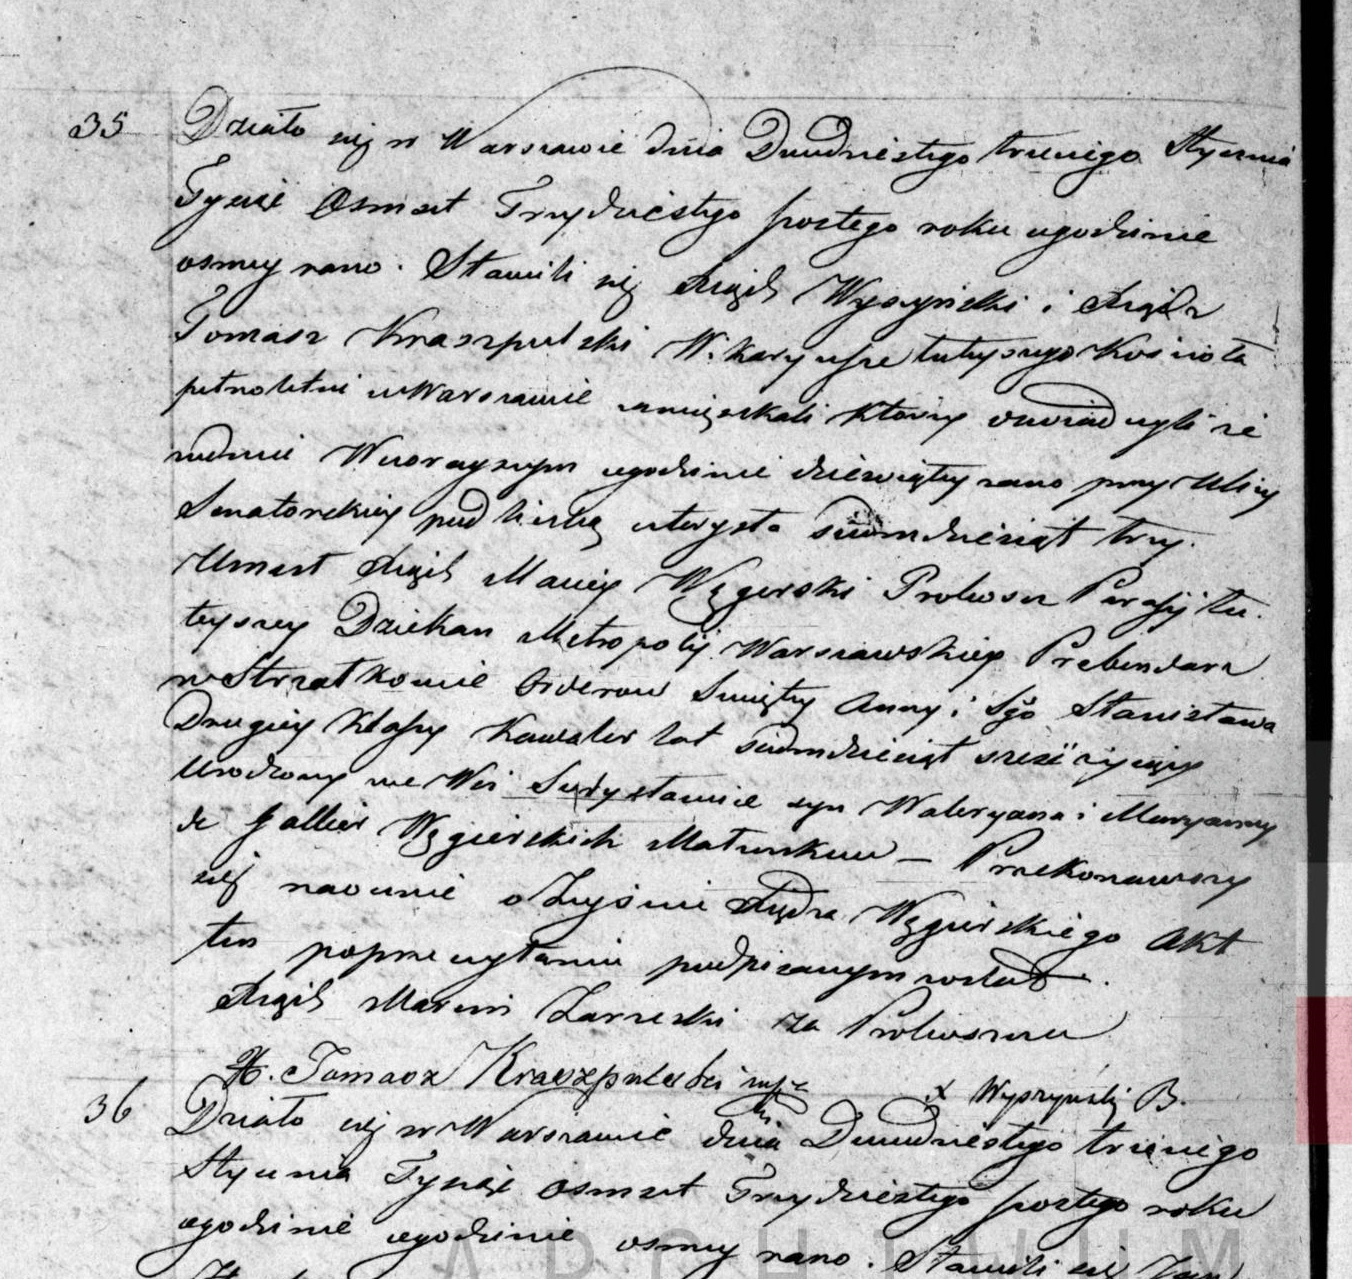 35
Działo się w Warszawie dnia Dwudziestego trzeciego Stycznia
Tysiąc Osmset Trzydziestego szostego roku o godzinie
osmey rano. Stawili się Xiądz Wyszyński i Xiądz
Tomasz Kraszpulski Wikaryusze tuteyszego Kościoła
pełnoletni w Warszawie zamięszkali którzy oświadczyli że
w dniu Wczorayszym o godzinie dziewiątey rano przy Ulicy
Senatorskiey pod liczbą czterysta siedmdziesiąt trzy
Umarł Xiądz Maciey Węgierski Proboszcz Parafij tu-
teyszey Dziekan Metropolij Warszawskiey Prebendarz
w Strzałkowie Orderow Swiętey Anny i Sgo Stanisława
Drugiey Klassy Kawaler lat siedmdziesiąt sześć żyjący
Urodzony we Wsi syn Waleryana i Maryanny
de Węgierskich Małżonkow – Przekonawszy
się naocznie o Zeyściu Xiędza Węgierskiego Akt
ten po przeczytaniu podpisanym został.
Xiądz Marcin za Proboszcza
X. Tomasz Kraszpulski mp
X Wyszyński B.
36
Działo się w Warszawie dnia Dwudziestego trzeciego
Stycznia Tysiąc Osmset Trzydziestego szostego roku
o godzinie o godzinie osmey rano. Stawili się
ARCHIWUM